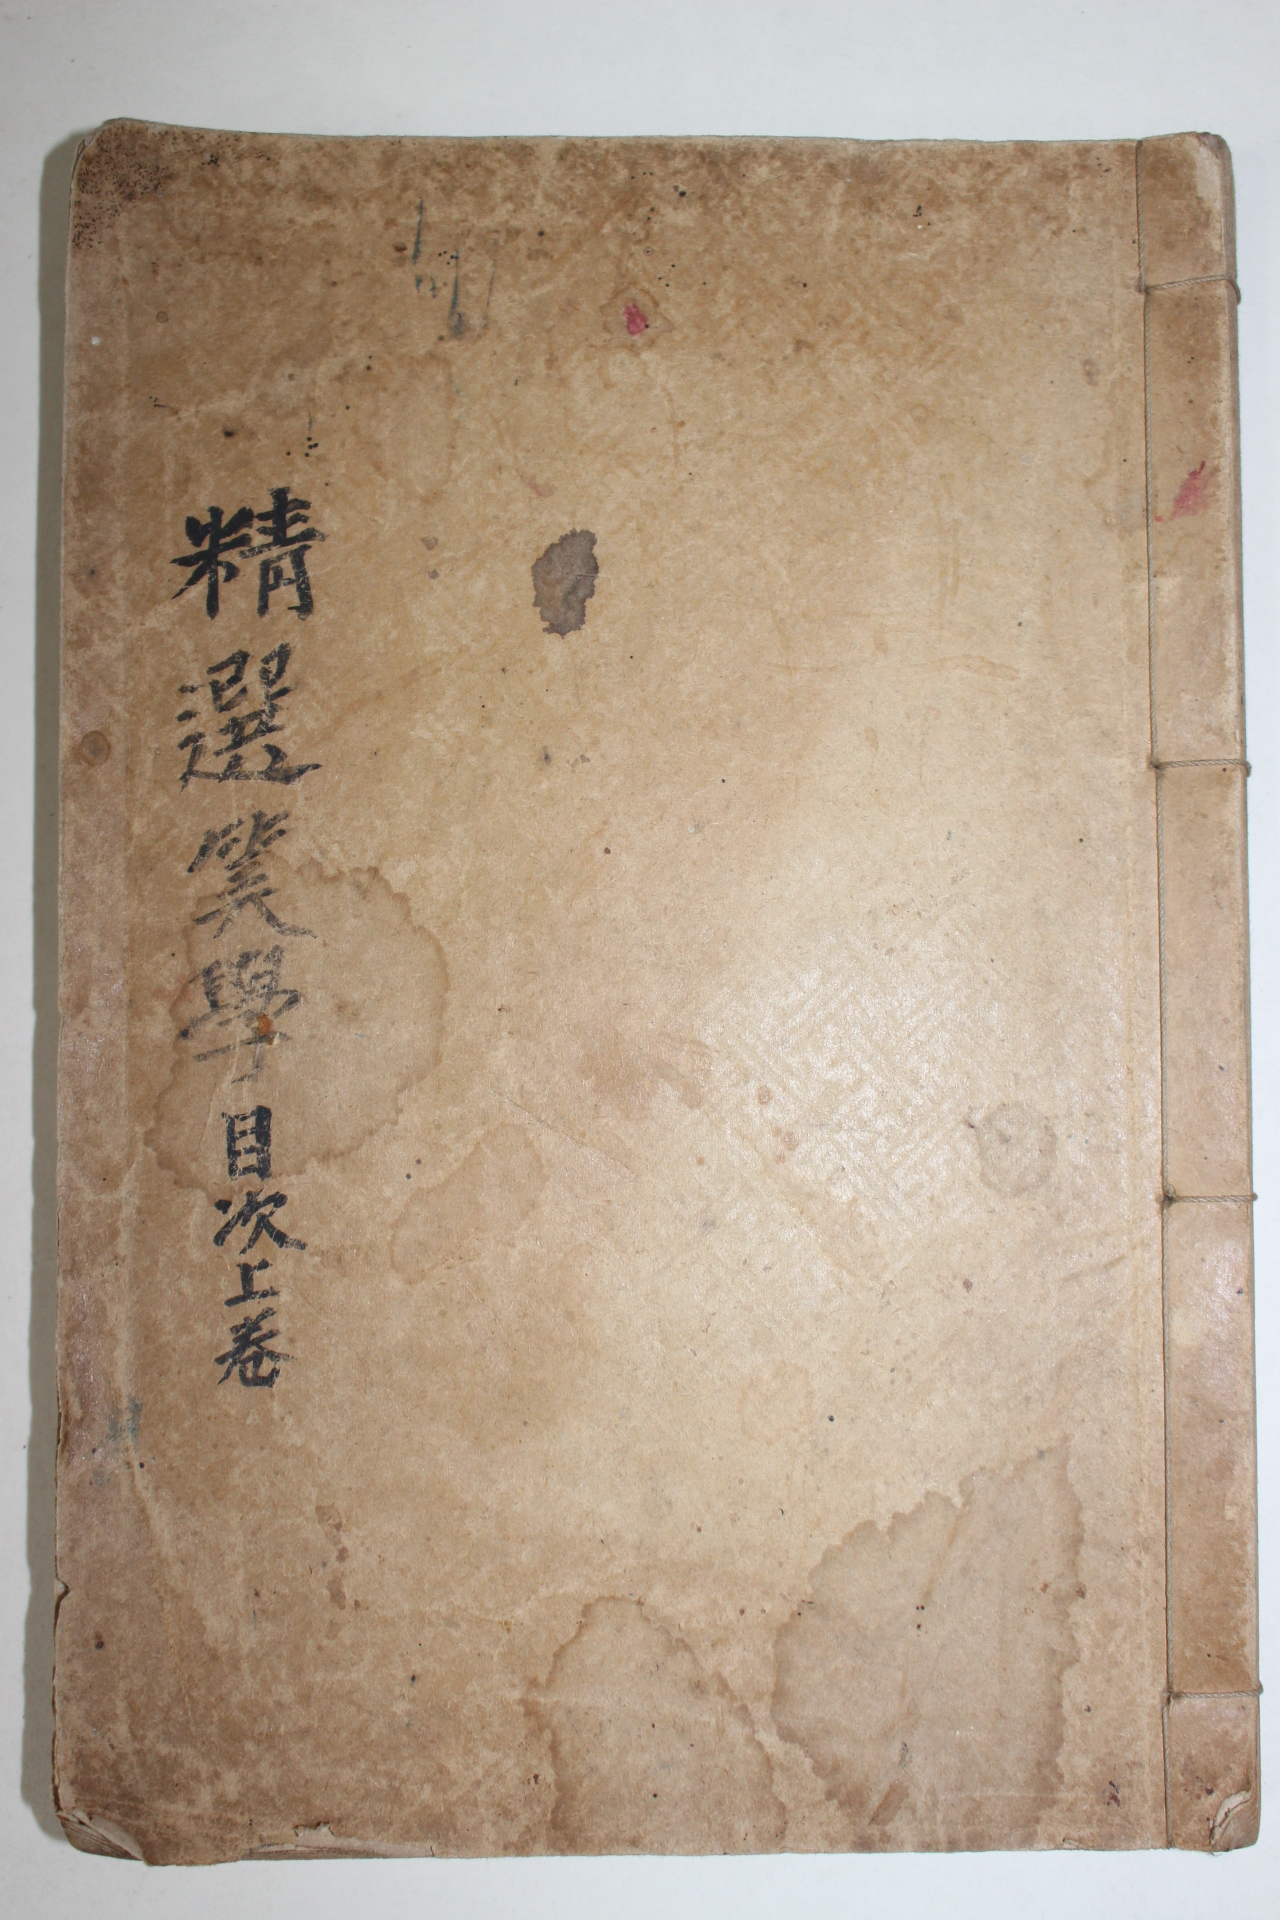 精選筭學目次上卷